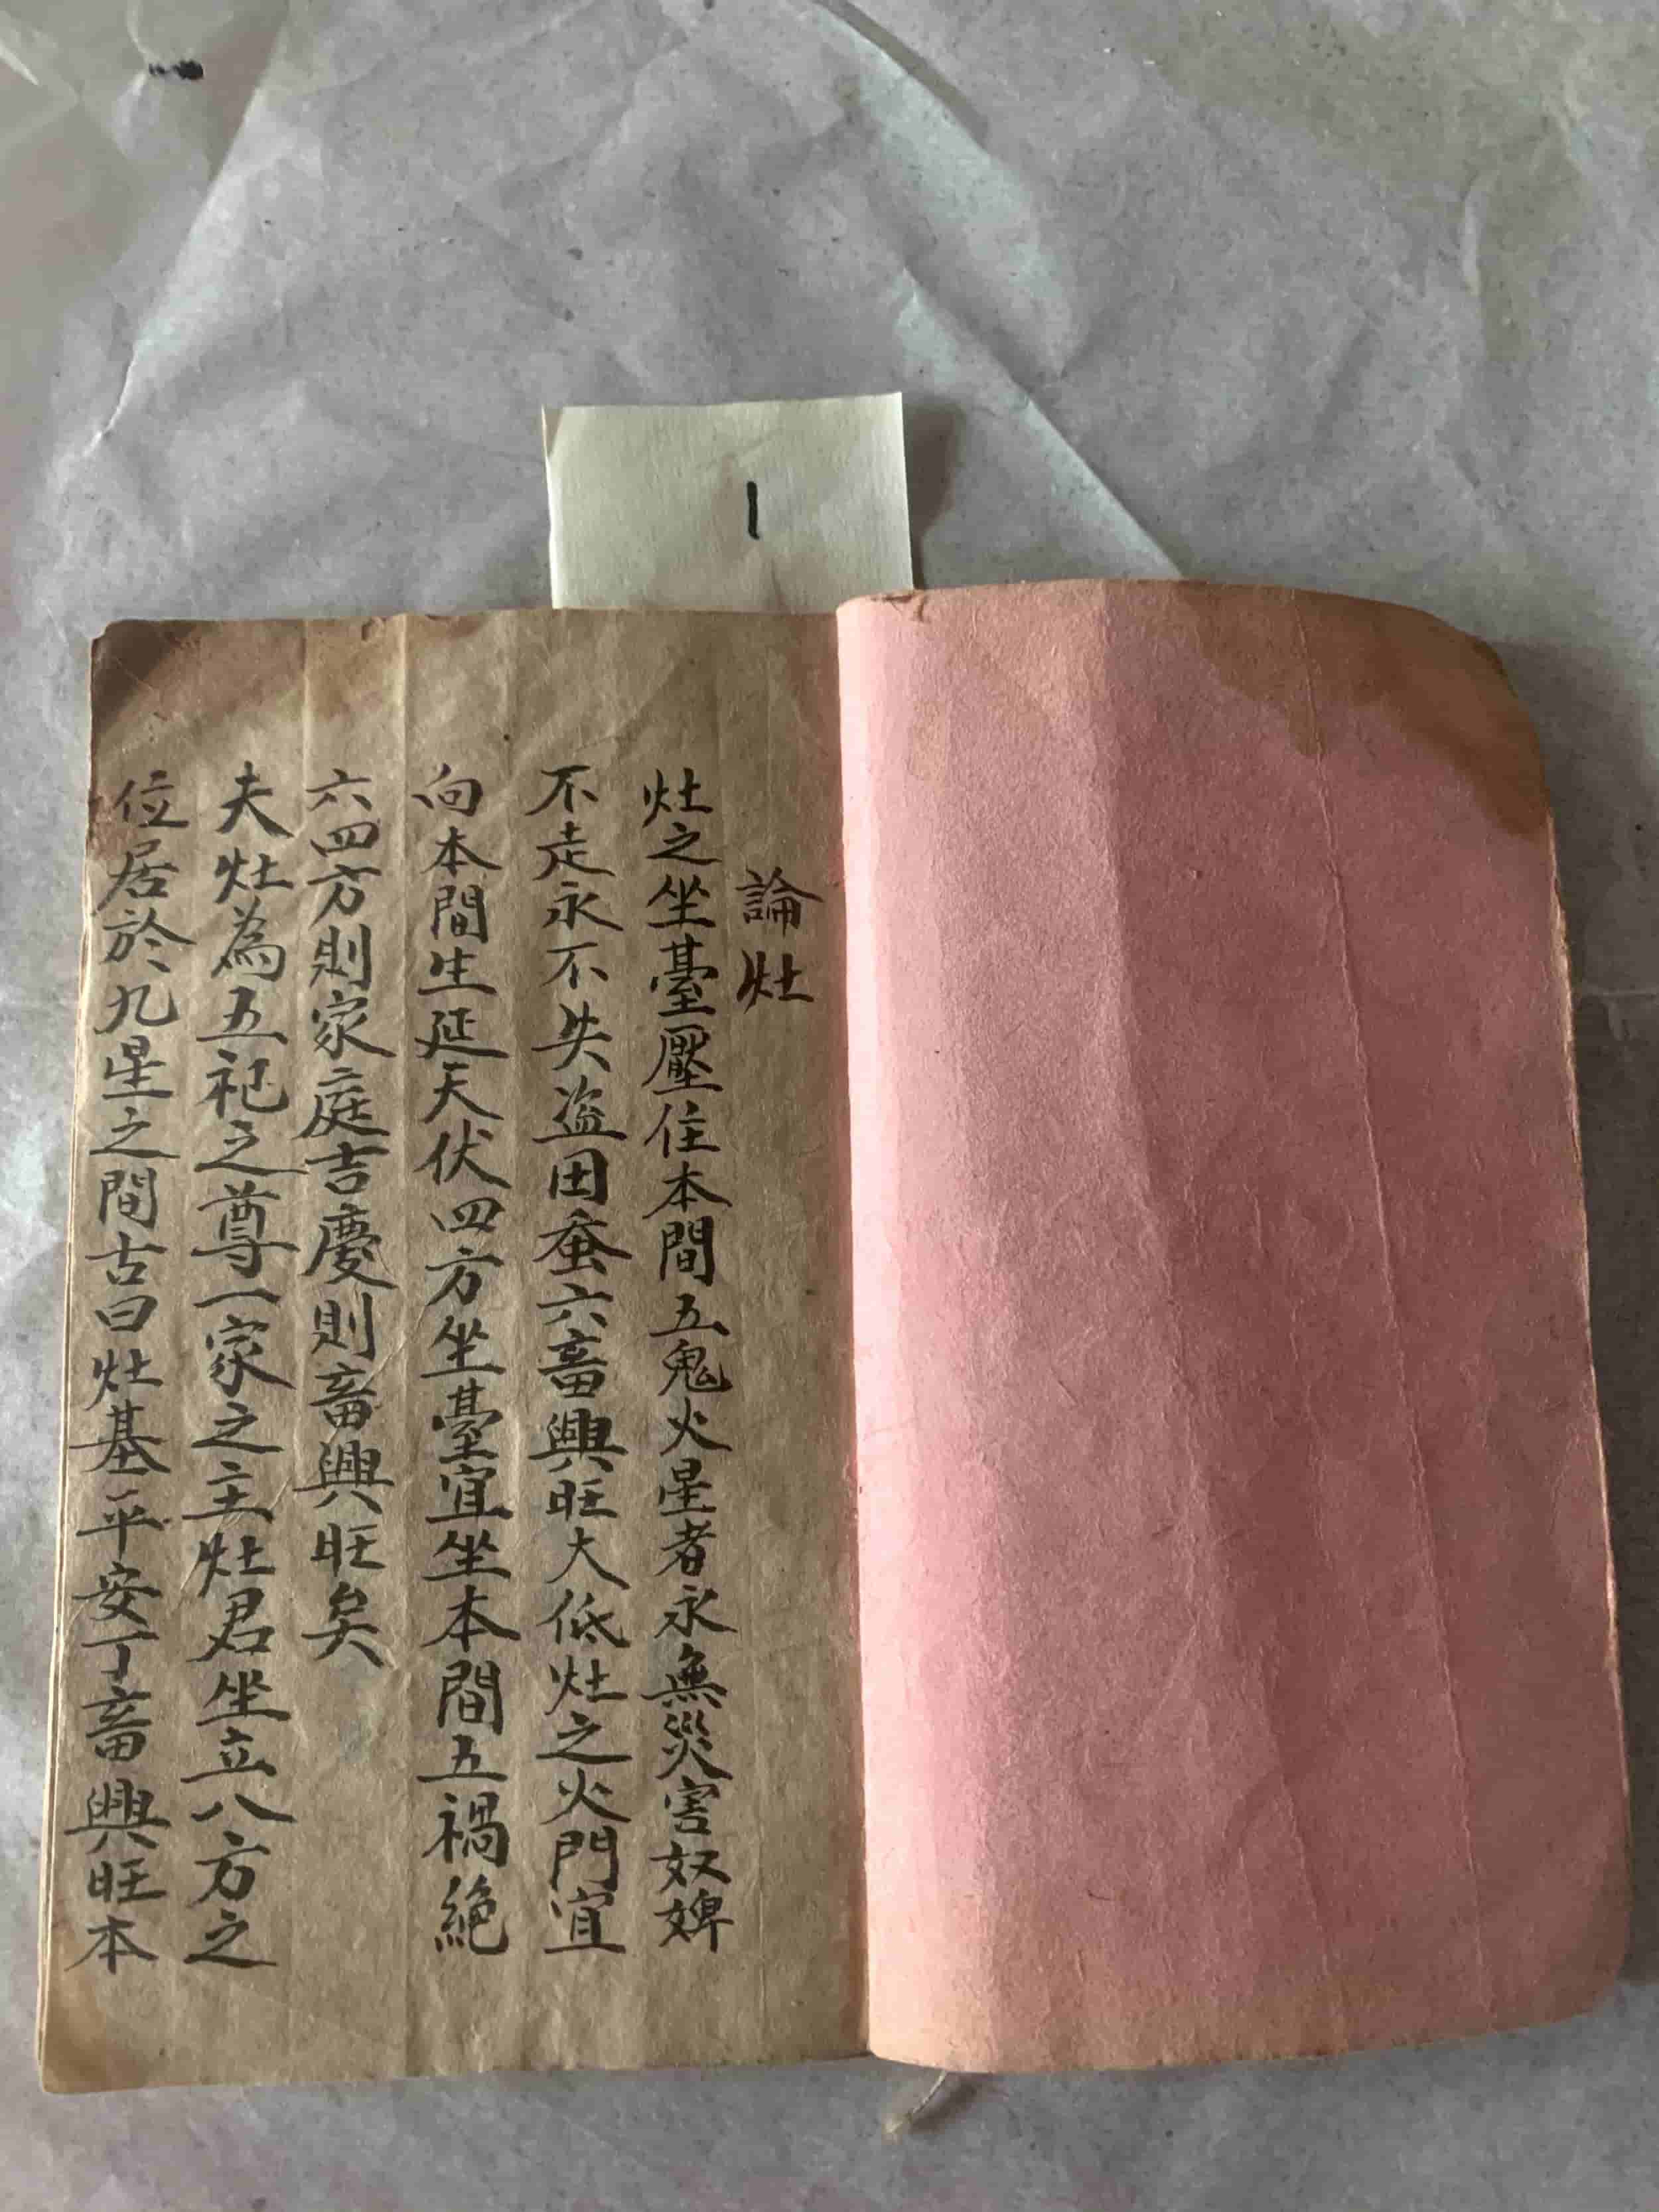 1
論灶
灶之坐臺壓住本間五鬼火星者永無災害奴婢
不走永不失盗田蚕六畜興旺大低灶之火門宜
向本間生延天伏四方坐臺宜坐本間五禍絶
六四方則家庭吉慶則畜興旺矣
夫灶為五祀之尊一家之主灶君坐立八方之
位居於九星之間古曰灶基平安丁畜興旺本